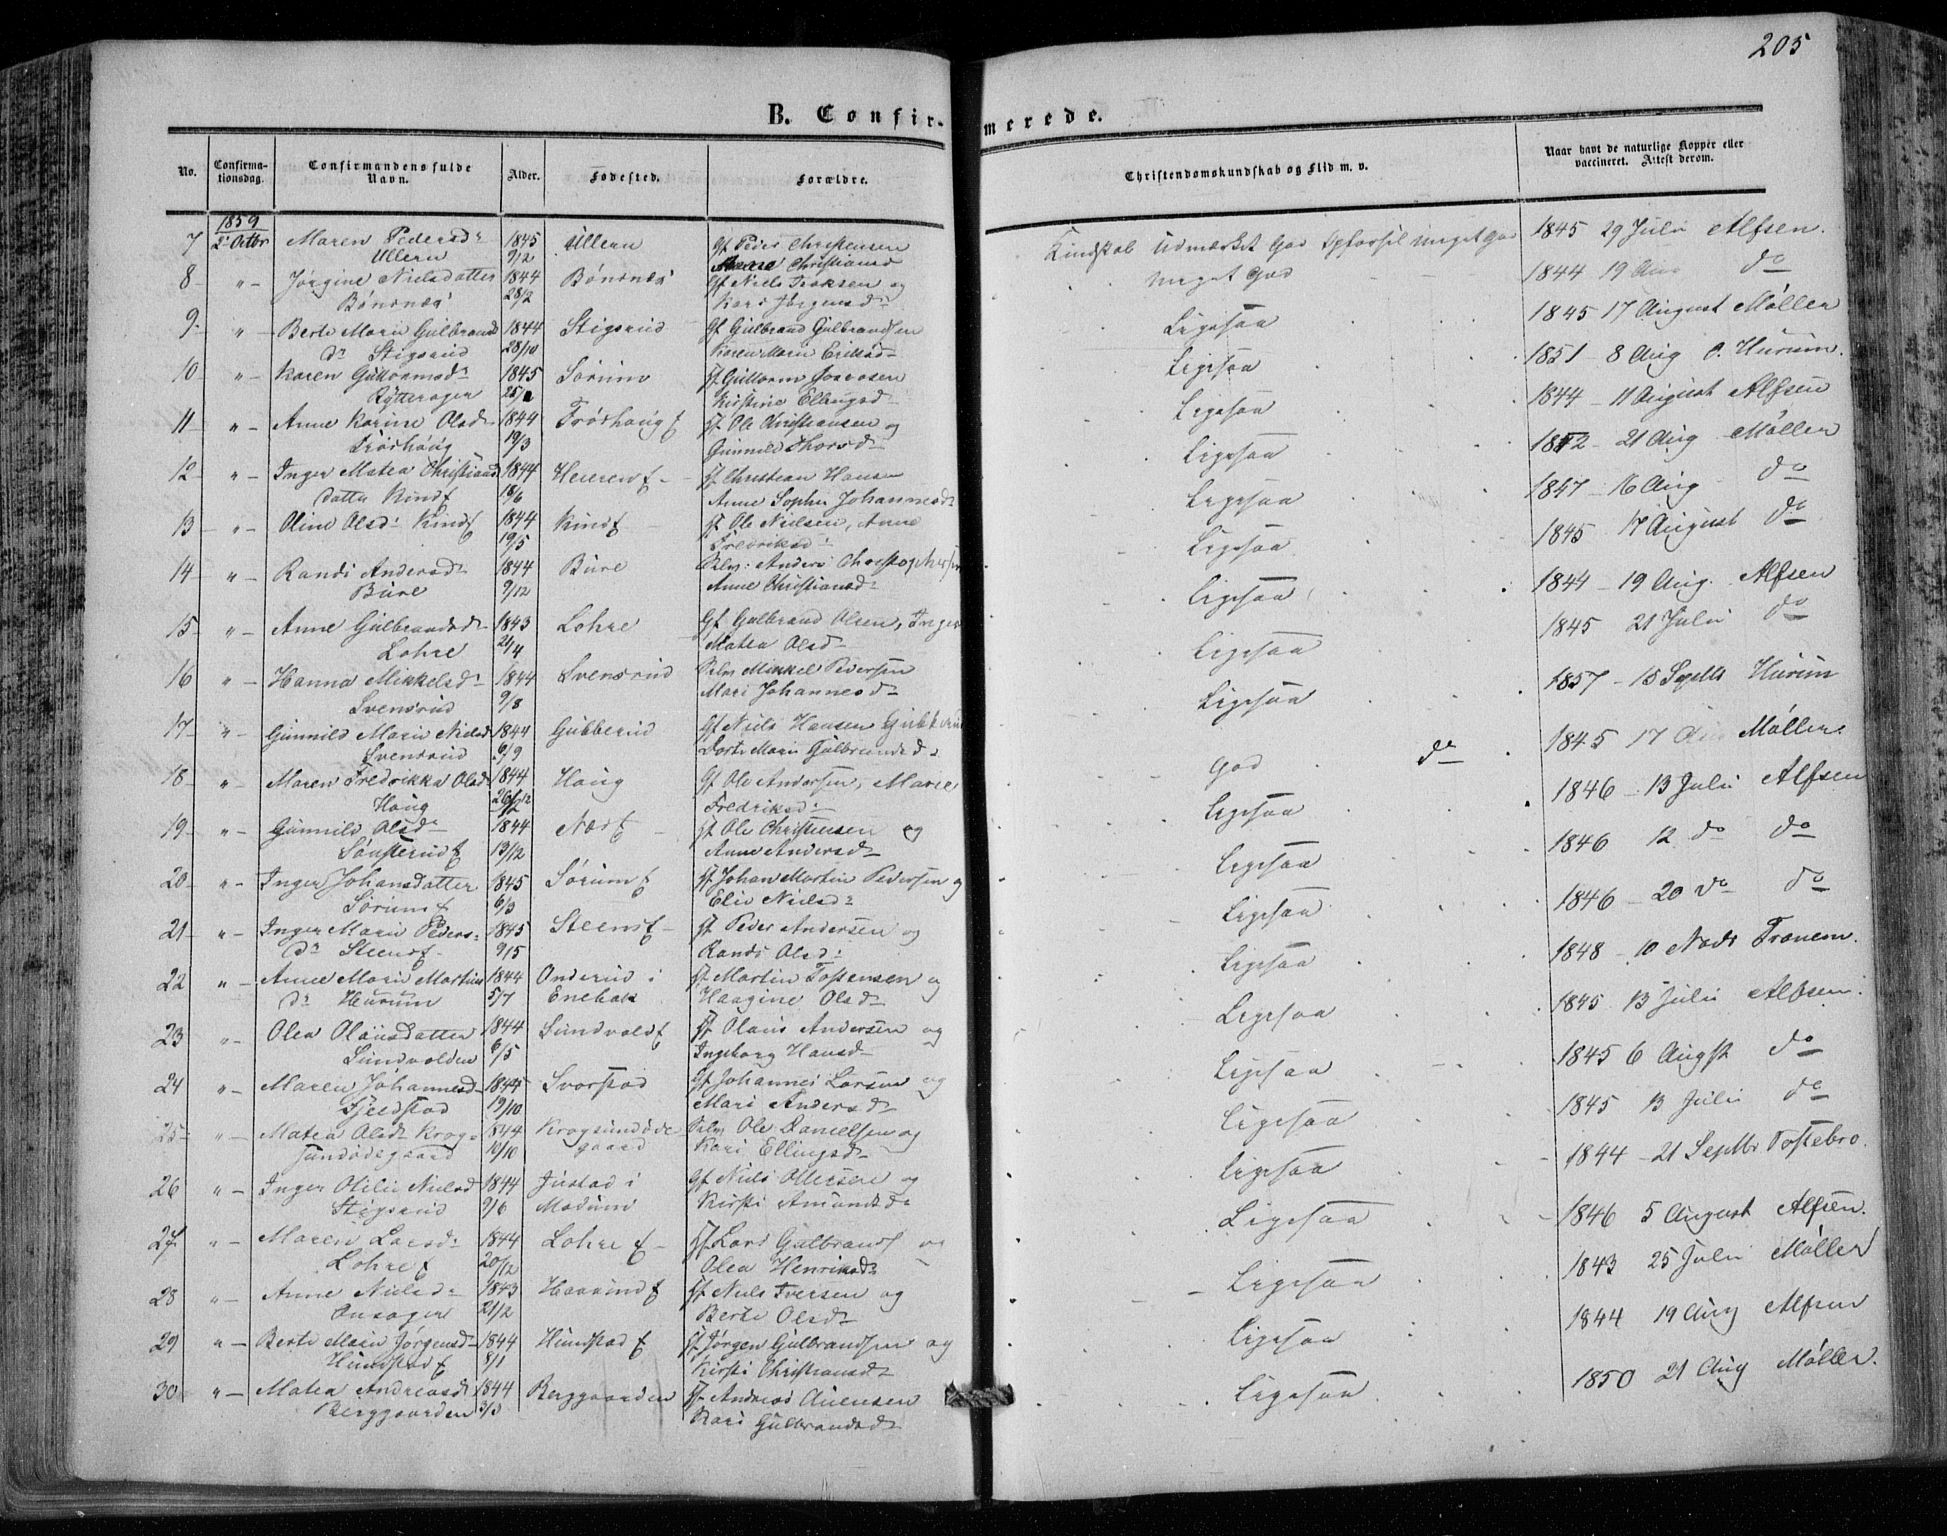 205
B. Confir-merede.
No. Confirma-tionsdag. Confirmandens fulde Navn. Alder. Fødested. Forældre. Christendomskundskab og Flid m. v. Naar havt de naturlige Kopper eller vaccineret. Attest derom.
1859
7 2' Octbr Maren Pedersd: 1845 Ullern Gf Peder Christensen Kundskab Udmærket God Opførsel meget God 1845 29 Juli Alfsen.
Ullern 9/2 Christiansd
8 " Jørgine Nielsdatter 1844 Bønsnæs Gf Niels Isaksen og meget God 1844 19 Aug do
Bønsnæs 28/2 Kari Jørgensd:
9 " Berte Marie Gulbrands 1844 Stigsrud Gf Gulbrand Gulbrandsen Ligesaa 1845 17 August Møller
dr Stigsrud 28/10 Karen Marie Eriksd:
10 " Karen Guttormsd: 1845 Sørum Gf Guttorm Ligesaa 1851 8 Aug O. Hurum.
Rytterager 25/2 Kirstine Ellingsd:
11 " Anne Karine Olsd: 1844 Frøshaug f Gf Ole Christiansen og Ligesaa 1844 11 August Alfsen
Frøshaug 19/3 Gunnild Thorsd:
12 " Inger Matea Christians 1844 Heieren f Gf Christian Hansen Ligesaa 1852 21 Aug Møller
datter 18/6 Anne Sophie Johannesd:
13 " Oline Olsd: 1844 Gf Ole Nielsen, Anne Ligesaa 1847 16 Aug do
19/5 Fredriksd:
14 " Randi Andersd: 1844 Bure Selv: Anders Christophersen Ligesaa 1845 17 August do
Bure 9/12 Anne Christiansd:
15 " Anne Gulbrandsd: 1843 Lohre Gf Gulbrand Olsen, Inger Ligesaa 1844 19 Aug. Alfsen
Lohre 21/4 Matea Olsd:
16 " Hanna Mikkelsd: 1844 Svensrud Selv Mikkel Pedersen Ligesaa 1845 21 Juli do
Svensrud 9/8 Mari Johannesd:
17 " Gunnild Marie Nielsd 1844 Gubberud Gf Niels Hansen Gubberud Ligesaa 1857 15 Septbr Hurum
Svensrud 6/9 Dorte Marie Gulbrandsd:
18 " Maren Fredrikka Olsd 1844 Haug Gf Ole Andersen, Marie God do 1845 17 Aug Møller.
Haug 26/12 Fredriksd:
19 " Gunnild Olsd: 1844 Næs f Gf Ole Christensen og Ligesaa 1846 13 Juli Alfsen
Sønsterud f 13/12 Anne Andersd:
20 " Inger Johansdatter 1845 Sørum f Gf Johan Martin Pedersen og Ligesaa 1846 12 do do
Sørum f 6/3 Eli Nielsd:
21 " Inger Marie Peders: 1845 Steens f Gf Peder Andersen og Ligesaa 1846 20 do do
dr Steens f 9/5 Randi Olsd:
22 " Anne Marie Martins 1844 Onderud i Gf Martin Tostensen og Ligesaa 1848 10 Novbr Tranem.
dr Hurum 5/7 Enebak Haagine Olsd:
23 " Olea Olausdatter 1844 Sundvold f Gf Olaus Andersen og Ligesaa 1845 13 Juli Alfsen.
Sundvolden 6/5 Ingeborg Hansd:
24 " Maren Johannesd: 1844 Svarstad Gf Johannes Larsen og Ligesaa 1845 6 Augst do
Fjeldstad 19/10 Mari Andersd:
25 " Matea Olsd: Krog- 1844 Krogsundøde- Selv Ole Danielsen og Ligesaa 1845 13 Juli do
sundødegaard 10/10 gaard Kari Ellingsd:
26 " Inger Otilie Nielsd 1844 Justad i Gf Niels Ottersen og Ligesaa 1844 21 Septbr Tostebro.
Stigsrud 9/6 Modum Kirsti Amundsd:
27 " Maren Larsd: 1844 Lohre f Gf Lars Gulbrands og Ligesaa 1846 5 August Alfsen.
Lohre f 20/12 Olea Henriksd:
28 " Anne Nielsd: 1843 f Gf Niels Iversen og Ligesaa 1843 25 Juli Møller
Onsager 21/2 Berte Olsd:
29 " Berte Marie Jørgensd: 1844 Hundstad f Gf Jørgen Gulbrandsen og Ligesaa 1844 19 Aug Alfsen
Hundstad f 8/1 Kirsti Christiansd:
30 " Matea Andreasd: 1844 Berggaarden Gf Andreas Auensen Ligesaa 1850 21 Aug Møller.
Berggaarden 3/3 Kari Gulbrandsd: